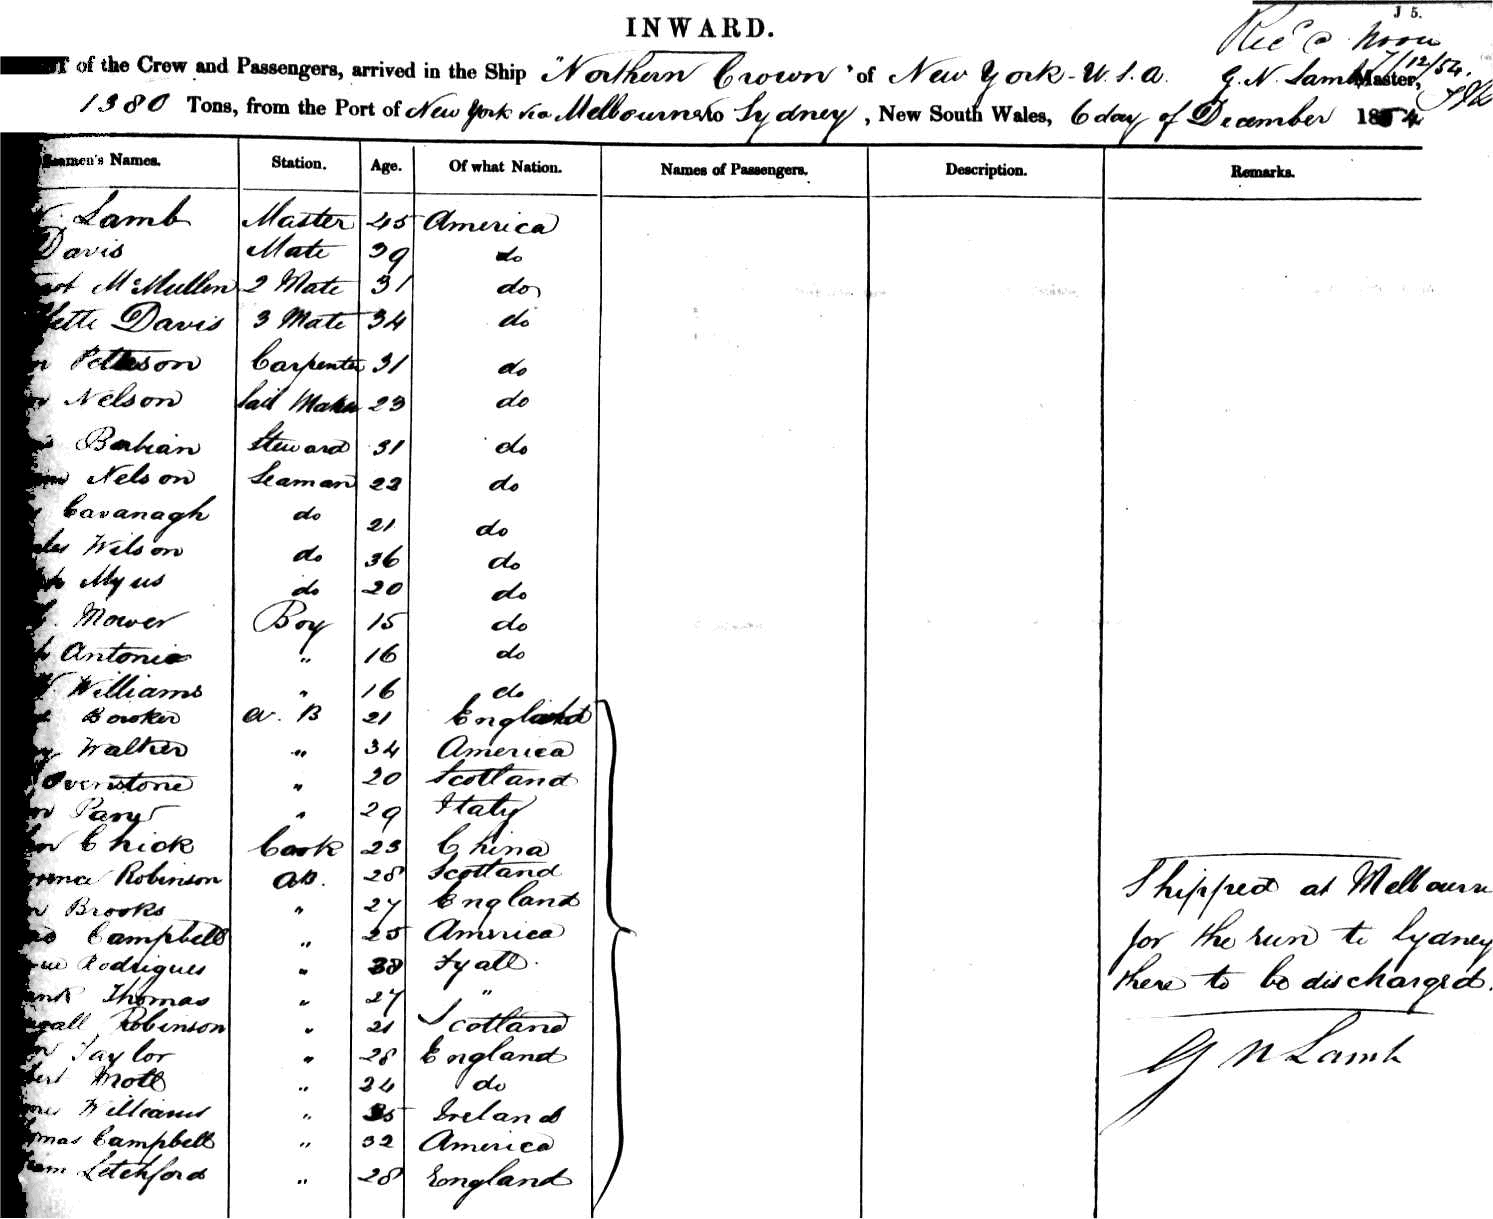 J 5.
INWARD.
Rec'd Noon
7/12/54.
of the Crew and Passengers, arrived in the Ship "Northern Crown" of New York - U.S.A. G. N. Lamb Master,
1380 Tons, from the Port of New York via Melbourne to Sydney, New South Wales, 6 day of December 1854
Seamen's Names. Station. Age. Of what Nation. Names of Passengers. Description. Remarks.
Lamb Master 45 America
Davis Mate 39 do
McMullen 2 Mate 31 do
Davis 3 Mate 34 do
Petterson Carpenter 31 do
Nelson Sail Maker 23 do
Barbian Steward 31 do
Nelson Seaman 22 do
Cavanagh do 21 do
Wilson do 36 do
Myus do 20 do
Mower Boy 15 do
Antonio " 16 do
Williams " 16 do
Bowker A. B 21 England
Walker " 34 America
Overstone " 20 Scotland
" 29 Italy
Chick Cook 23 China
Robinson AB. 28 Scotland
Brooks " 27 England
Campbell " 25 America
Rodrigues " 38 Fyall.
Thomas " 27 "
Robinson " 21 Scotland
Taylor " 28 England
Mott " 24 do
Williams " 35 Ireland
Campbell " 32 America
Letchford " 28 England
Shipped at Melbourne
for the run to Sydney
there to be discharged.
G N Lamb